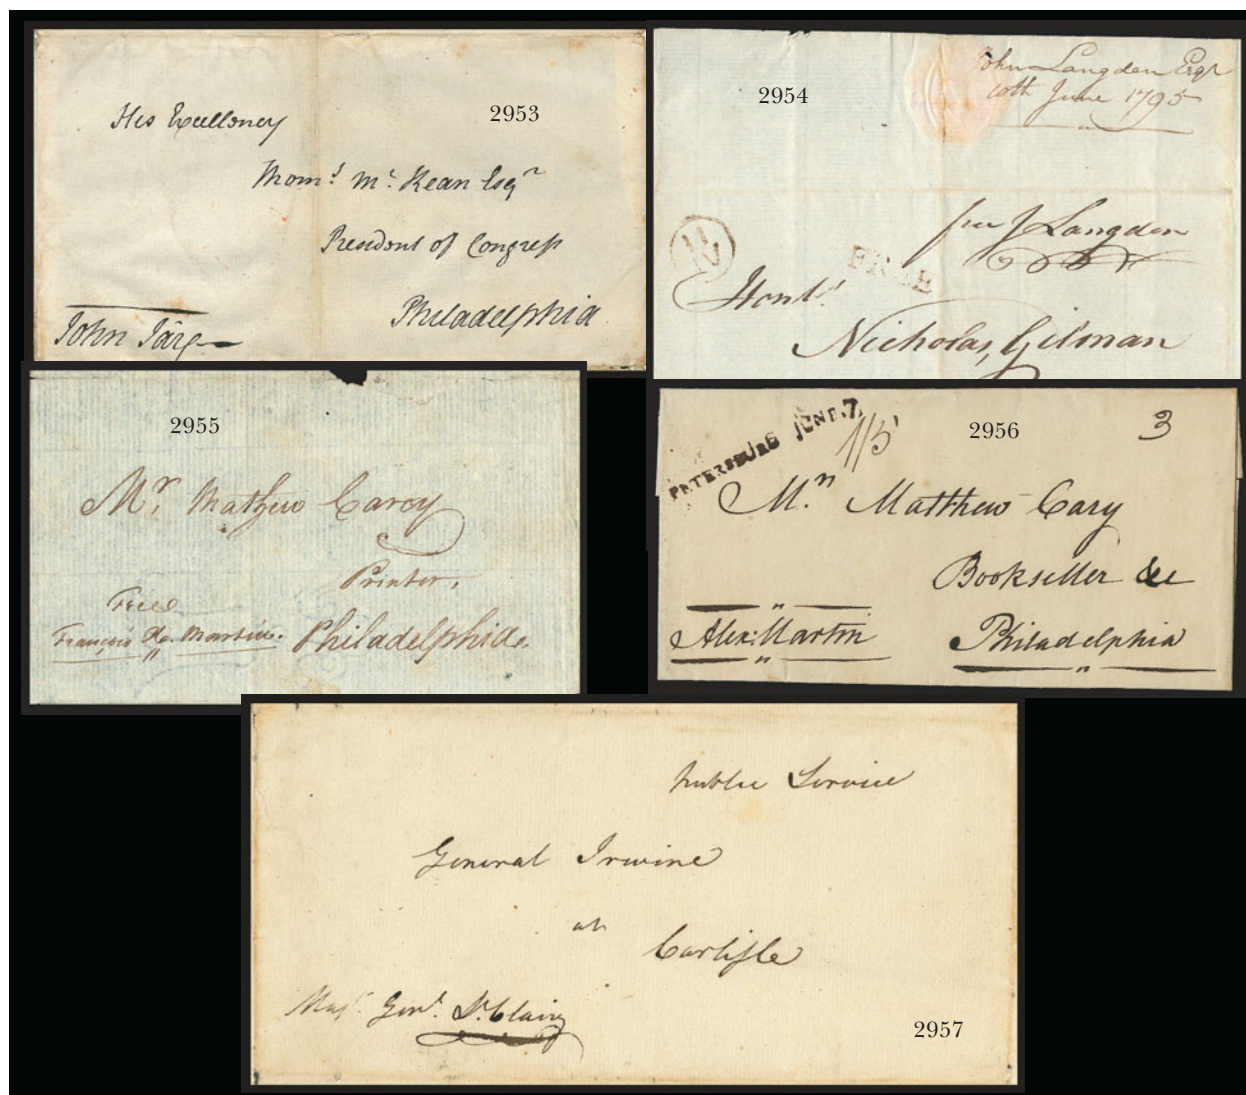 2953
His Excellency
Thoms. Mc. Kean Esqr
President of Congress
Philadelphia
John Jay
2954
John Langdon Esqr
10th June 1795
free J Langdon
FREE
Honble
Nicholas Gilman
2955
Mr. Mathew Carey
Printer,
Free
François X. Martin.
Philadelphia.
2956
PETERSBURG JUNE.7.
1/5
3
Mr. Matthew Cary
Bookseller &c
Philadelphia
Alex: Martin
2957
Public Service
General Irwine
at
Carlisle
Maj. Genl. St. Clair